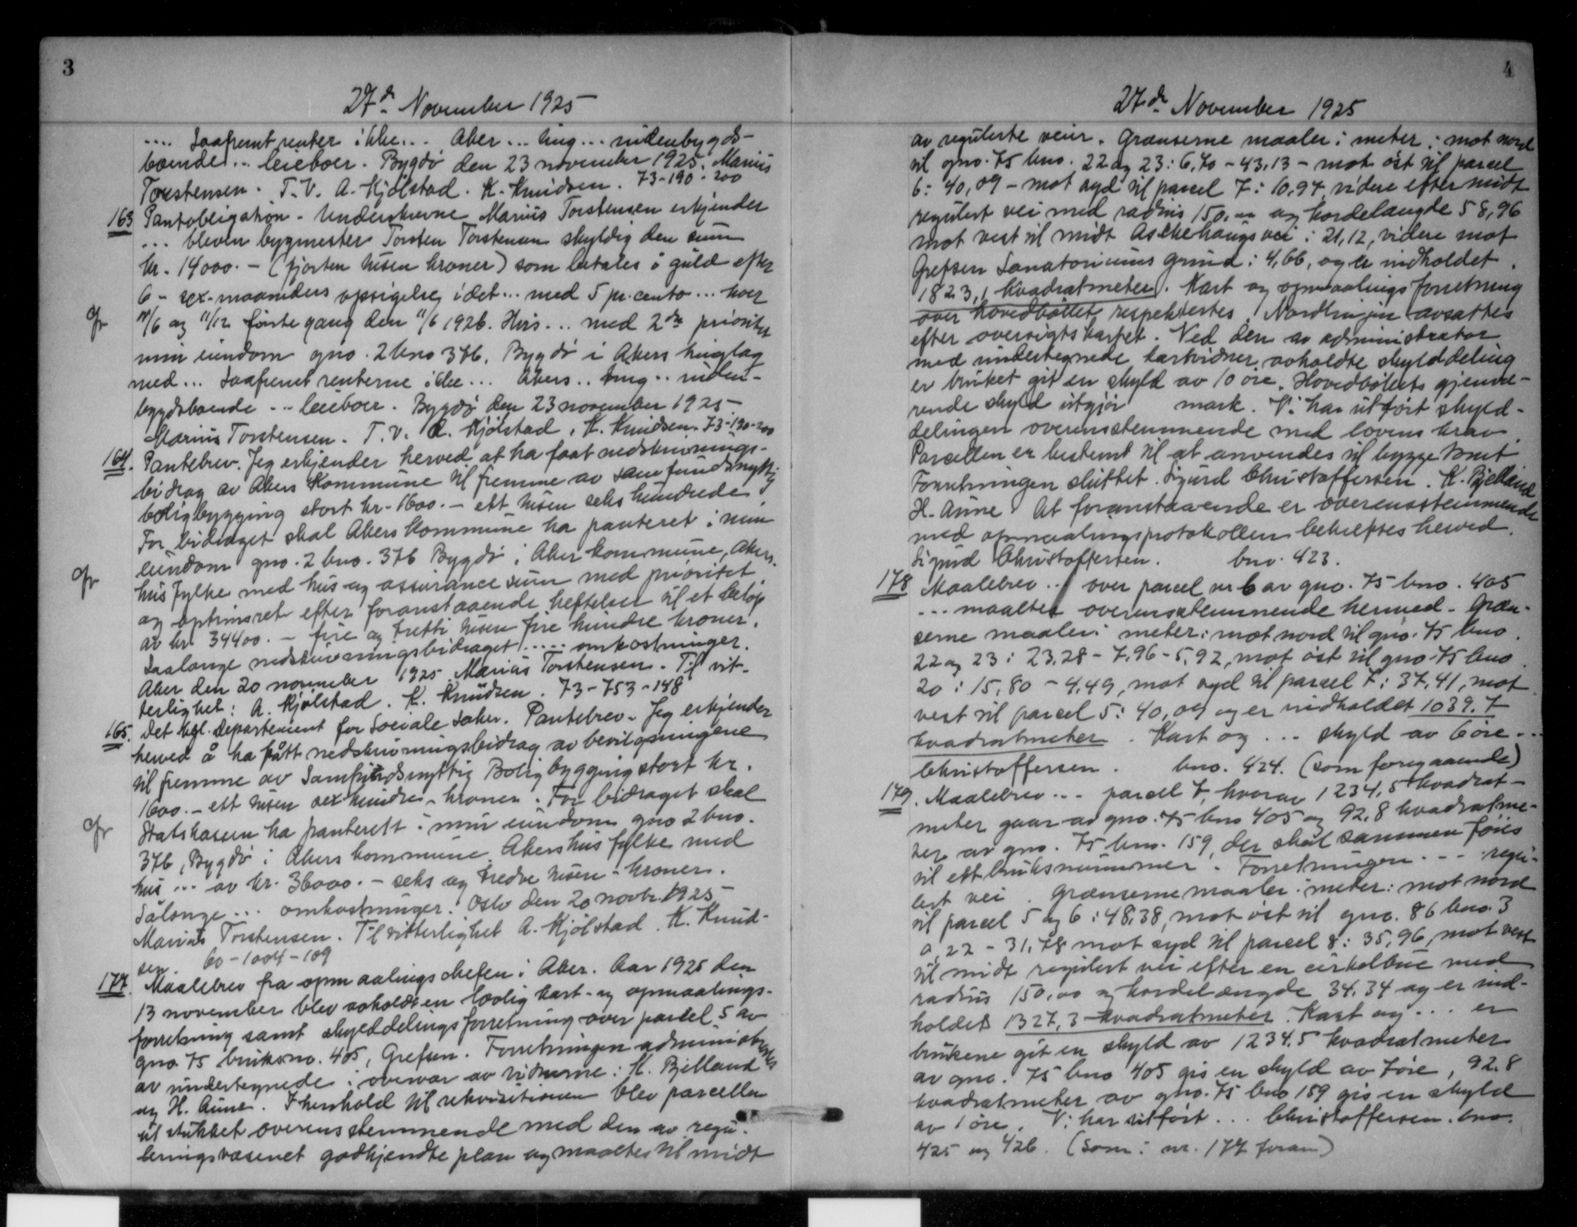 3
27de November 1925
.... Saafremt renter ikke... Aker... ting... utenbygds-
boende... leieboer. Bygdø den 23 november 1925. Marius
Torstensen. T.V. A. Kjölstad. K. Knudsen. 73-190-200
163 Pantobligation. Underskrevne Marius Torstensen erkjender
... bleven bygmester Torsten Torstensen skyldig den sum
kr. 14000.- (fjorten tusen kroner) som betales i guld efter
6- sex- maaneders opsigelse, idet... med 5 pr. cento... hver
11/6 og 11/12 første gang den 11/6 1926. Hvis... med 2den prioritet
gf
min eiendom gno. 2 bno 376, Bygdö i Akers tinglag
med... Saafremt renterne ikke... Akers.. ting.. uten-
bygdsboende... leieboer. Bygdö den 23 november 1925.
Marius Torstensen. T.V. A. Kjölstad. K. Knudsen. 73-190-200
164. Pantebrev. Jeg erkjender herved at ha faat nedskrivnings-
bidrag av Akers Kommune til fremme av samfundsnyttig
boligbygging stort kr. 1600.- ett tusen seks hundrede
For bidraget skal Akers kommune ha panteret i min
eiendom gno. 2 bno. 376 Bygdö i Aker kommune, Akers-
gf
hus fylke med hus og assurance sum med prioritet
og optrinsret efter foranstaaende heftelser til et beløp
av kr 34400.- fire og tretti tusen fire hundre kroner.
Saalænge nedskrivningsbidraget..... omkostninger.
Aker den 20 november 1925 Marius Torstensen. Til vit-
terlighet: A. Kjölstad. K. Knudsen. 73-753-148
165. Det kgl. departement for Sociale saker. Pantebrev. Jeg erkjender
herved å ha fått nedskrivningsbidrag av bevilgningene
til fremme av Samfundsnyttig Boligbygging stort kr.
1600.- ett tusen sex hundre- kroner. For bidraget skal
gf
Statskassen ha panterett i min eiendom gno 2 bno.
376, Bygdö i Akers kommune Akershus fylke med
hus... av kr. 36000.- seks og tredve tusen- kroner.
Sålenge... omkostninger. Oslo den 20 novbr 1925
Marius Torstensen. Til vitterlighet A. Kjölstad. K. Knud-
sen. 60-1004-109
177. Maalebrev fra opmaalingschefen i Aker. Aar 1925 den
13 november blev avholdt en lovlig kart- og opmaalings-
forretning samt skylddelingsforretning over parcel 5 av
gno 75 bruksno. 405, Grefsen. Forretningen administrertes
av undertegnede i overvær av vidnerne: K. Bjelland
og H. Aune. I henhold til rekvisitionen blev parcellen
ut stukket overensstemmende med den av regu-
leringsvæsenet godkjendte plan og maaltes til midt
4
27de November 1925
av regulerte veier. Grænserne maaler i meter: mot nord
til gno. 75 bno. 22 og 23: 6,70 - 43,13 - mot øst til parcel
6: 40,09 - mot syd til parcel 7: 10,97 videre efter midt
regulert vei med radius 150,00 og kordelængde 58,96
mot vest til midt Aschehougs vei: 21,12, videre mot
Grefsen Sanatoriums grund: 4,66, og er indholdet
1823,1 kvadratmeter. Kart og opmaalings forretning
over hovedbøllet respektertes. Nordlinjen avsattes
efter oversigtskartet. Ved den av administrator
med undertegnede lartvidner avholdte skylddeling
er bruket git en skyld av 10 øre. Hovedbølets gjenvæ-
rende skyld utgjør mark. Vi har utført skyld-
delingen overensstemmende med lovens krav.
Parcellen er bestemt til at anvendes til bygge tomt
Forretningen sluttet. Sigurd Christoffersen. K. Bjelland
H. Aune. At foranstaaende er overensstemmende
med opmaalingsprotokollen bekreftes herved.
Sigurd Christoffersen. bno. 423.
178 Maalebrev... over parcel nr 6 av gno. 75 bno. 405
... maaltes overensstemmende hermed. Græn-
serne maaler i meter: mot nord til gno. 75 bno.
22 og 23: 23,28 - 7,96 - 5,92, mot øst til gno. 75 bno.
20: 15,80 - 4,49, mot syd til parcel 7: 37,41, mot
vest til parcel 5: 40,09 og er indholdet 1039,7
kvadratmeter. Kart og... skyld av 6 øre...
Christoffersen. bno. 424. (som foregaaende)
179. Maalebrev... parcel 7, hvorav 1234,5 kvadrat-
meter gaar av gno. 75 bno 405 og 92,8 kvadratme-
ter av gno. 75 bno. 159, der skal sammen føies
til ett bruksnummer. Forretningen... regu-
lert vei. Grænserne maaler i meter: mot nord
til parcel 5 og 6: 48,38, mot øst til gno. 86 bno. 3
0,22 - 31,78 mot syd til parcel 8: 35,96, mot vest
til midt regulert vei efter en cirkelbue med
radius 150,00 og kordelængde 34,34 og er ind-
holdet 1327,3 kvadratmeter. Kart og... er
brukene git en skyld av 1234,5 kvadratmeter
av gno. 75 bno 405 gis en skyld av 7 øre, 92,8
kvadratmeter av gno. 75 bno 159 gis en skyld
av 1 øre. Vi har utført... Christoffersen. bno.
425 og 426. (som: nr. 177 foran)